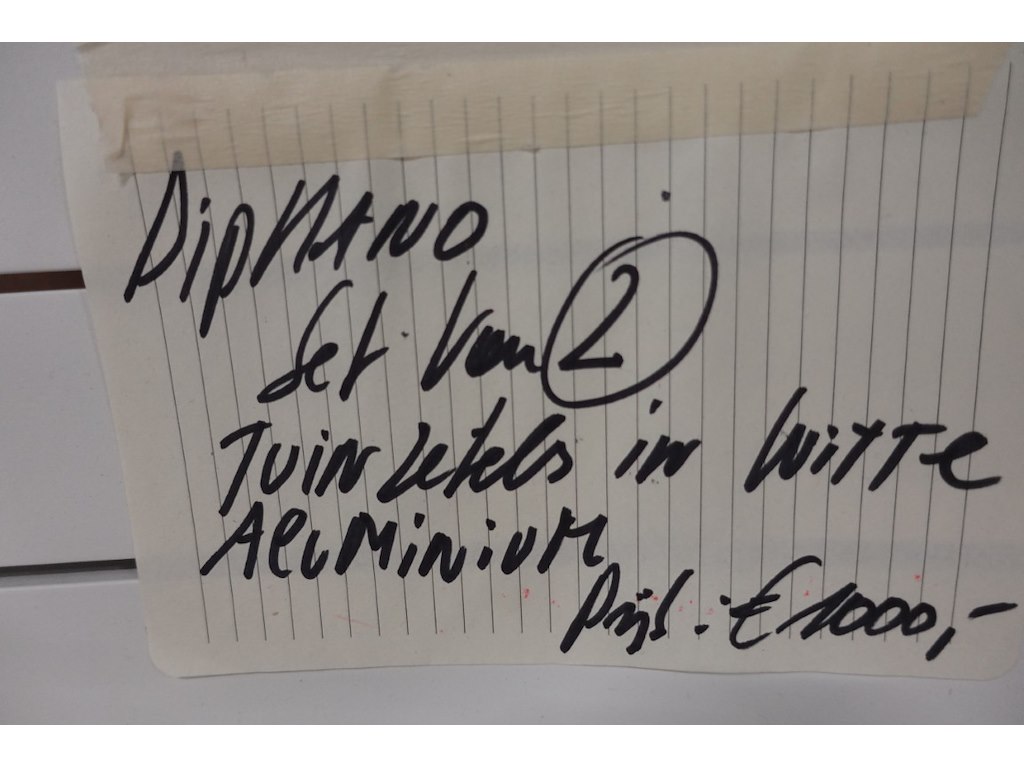 DiPHANO
Set Van 2
TuinZetels in WiTTe
AluMiniuM
Prijs : € 1000,-